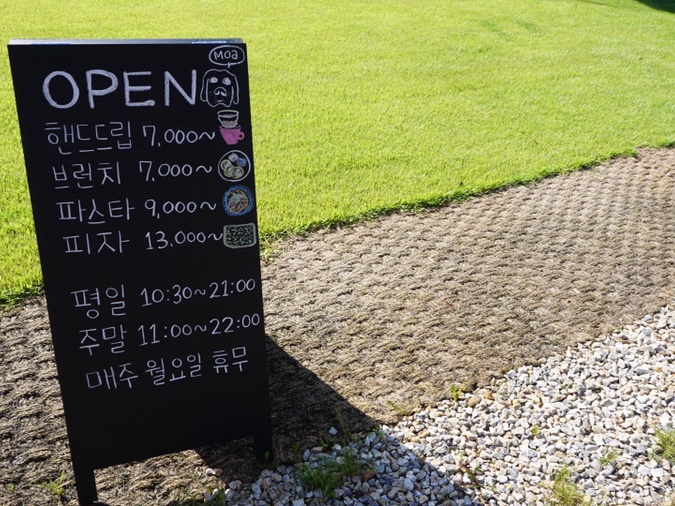 moa
OPEN
핸드드립 7,000~
브런치 7,000~
파스타 9,000~
피자 13,000~
평일 10:30~21:00
주말 11:00~22:00
매주 월요일 휴무